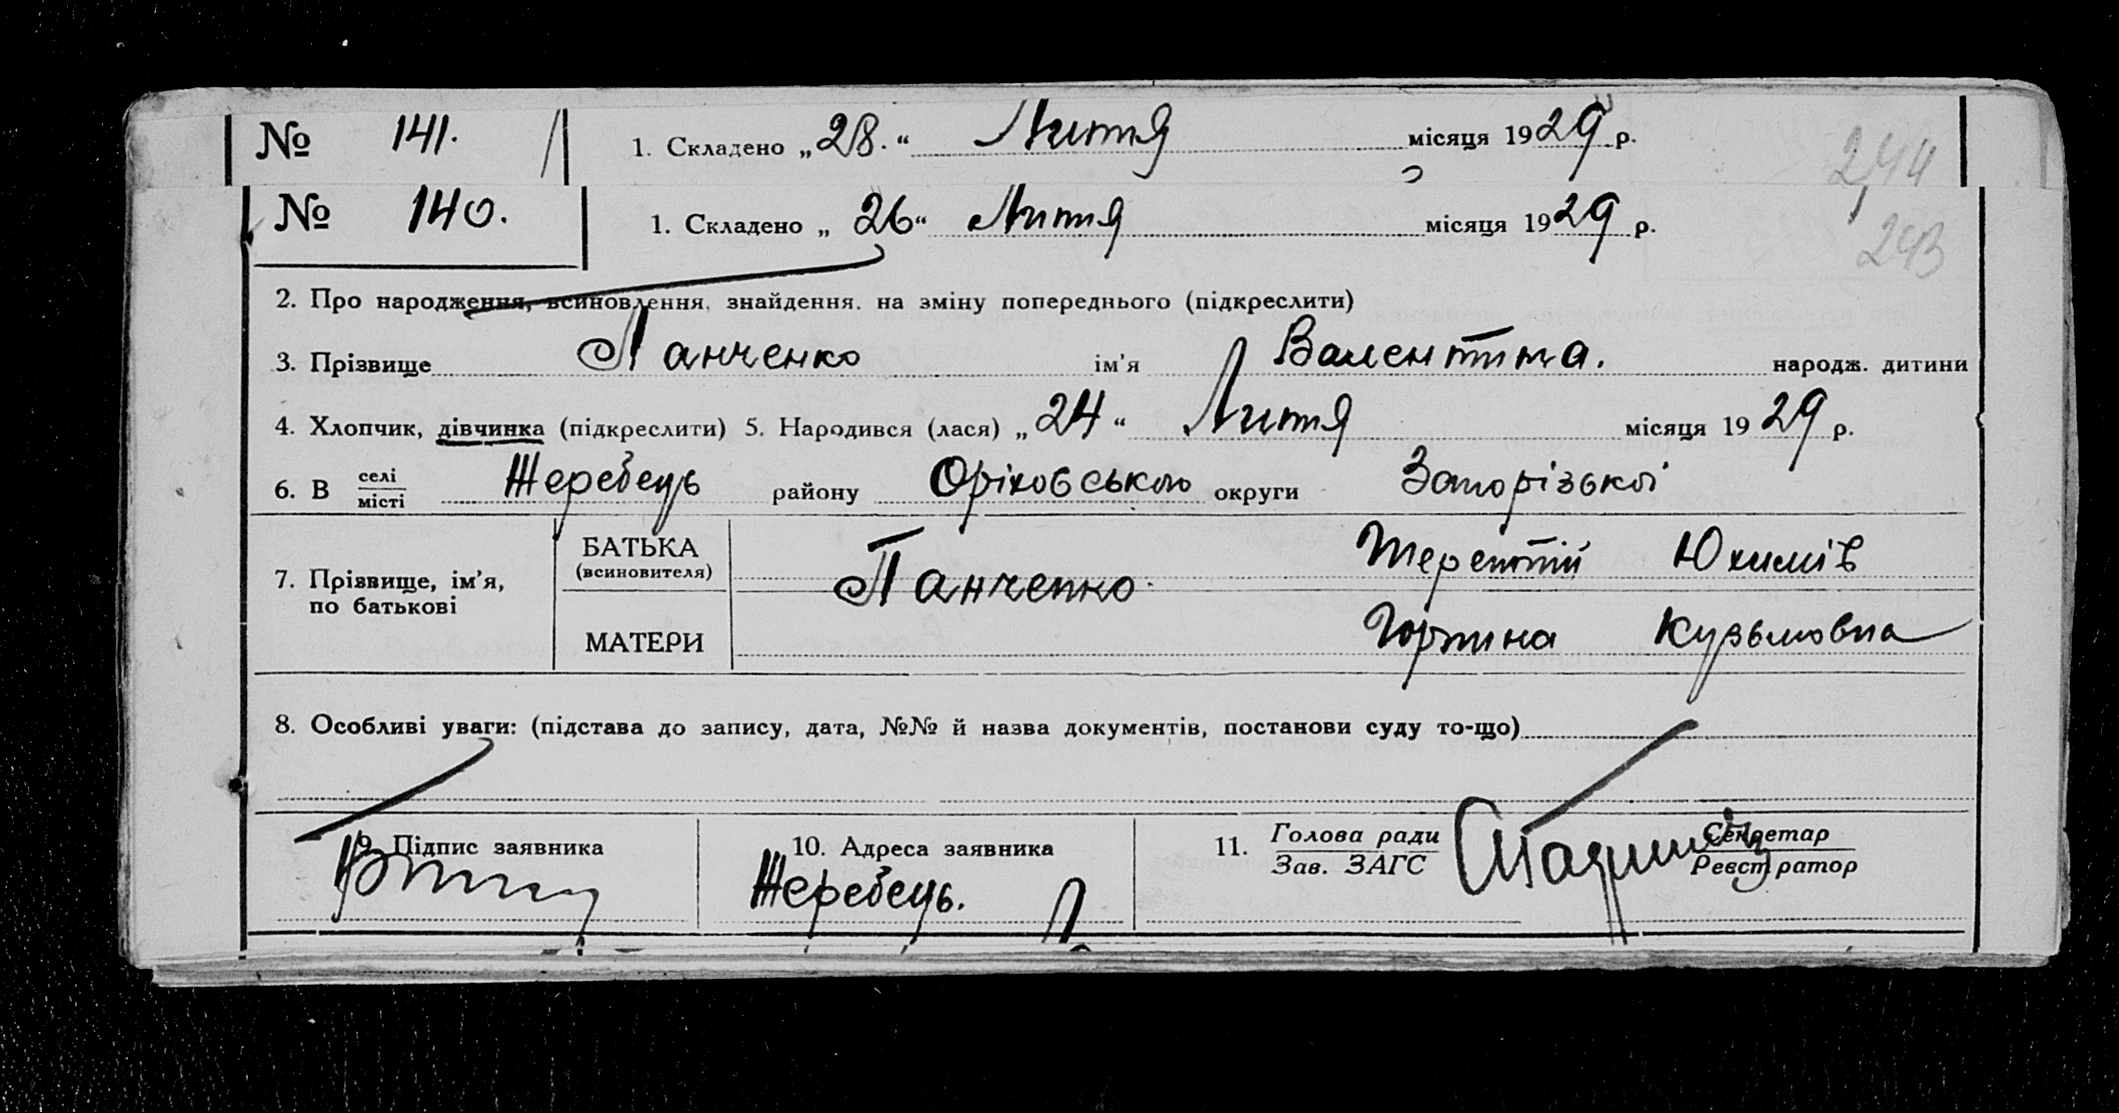 № 141. 1. Складено „28.“ Липня місяця 1929 р.
244
№ 140. 1. Складено „26“ Липня місяця 1929 р.
243
2. Про народження, всиновлення, знайдення, на зміну попереднього (підкреслити)
3. Прізвище Панченко ім'я Валентина. народж. дитини
4. Хлопчик, дівчинка (підкреслити) 5. Народився (лася) „24“ Липня місяця 1929 р.
6. В селі/місті Жеребець району Оріховського округи Запорізької
7. Прізвище, ім'я, по батькові
БАТЬКА (всиновителя) Панченко Терентій Юхимів
МАТЕРИ Горпина Кузьмовна
8. Особливі уваги: (підстава до запису, дата, №№ й назва документів, постанови суду то-що)
9. Підпис заявника
10. Адреса заявника
Жеребець.
11. Голова ради / Зав. ЗАГС
Секретар / Реєстратор